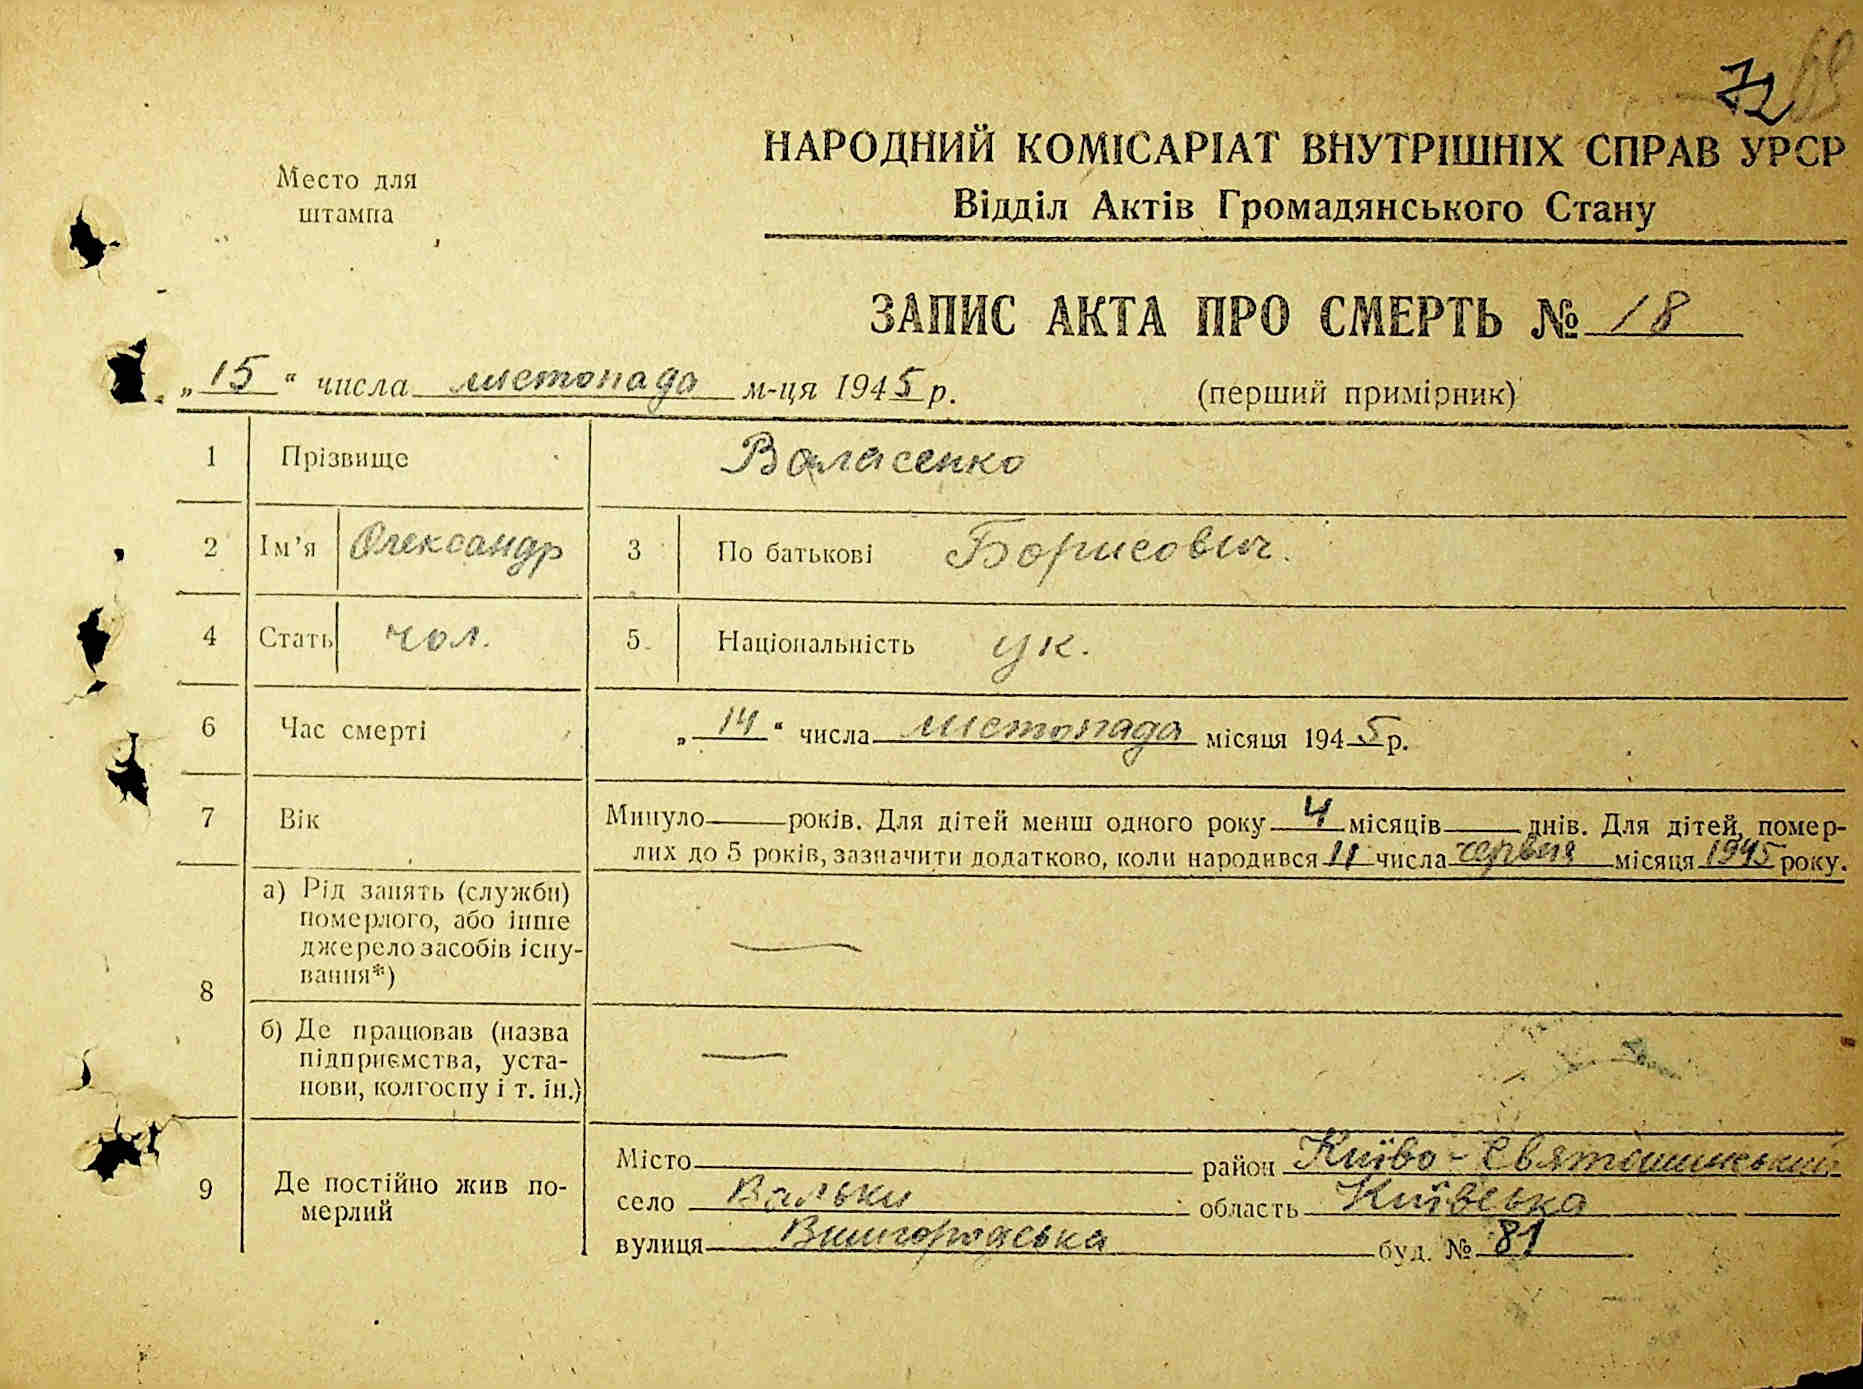 72
68
НАРОДНИЙ КОМІСАРІАТ ВНУТРІШНІХ СПРАВ УРСР
Відділ Актів Громадянського Стану
Место для
штампа
ЗАПИС АКТА ПРО СМЕРТЬ № 18
„15“ числа листопада м-ця 1945 р.
(перший примірник)
1 Прізвище Валасенко
2 Ім’я Олександр 3 По батькові Борисович.
4 Стать чол. 5. Національність ук.
6 Час смерті „14“ числа листопада місяця 1945 р.
7 Вік Минуло — років. Для дітей менш одного року 4 місяців — днів. Для дітей, помер-
лих до 5 років, зазначити додатково, коли народився 11 числа червня місяця 1945 року.
8 а) Рід занять (служби)
померлого, або інше
джерело засобів існу-
вання*) —
б) Де працював (назва
підприємства, уста-
нови, колгоспу і т. ін.) —
9 Де постійно жив по-
мерлий
Місто район Києво-Святошинський
село область Київська
вулиця Вишгородська буд. № 81